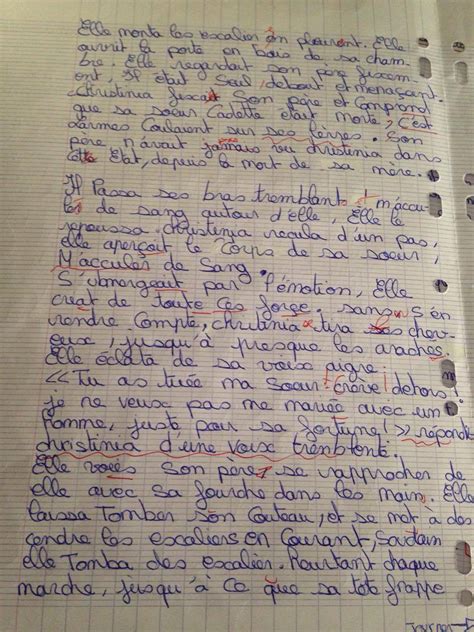 Elle monta les escalier en pleurant. Elle
ouvrit la porte en bois de sa cham-
bre. Elle regardait son père fixem-
ent, Il était Seul, debout et menaçant.
Christinia fixait Son père et Comprend
que sa soeur Cadette était morte, C'est
larmes Coulaient sur ses lèvres. Son
père n'avait jamais vu christinia dans
cette Etat, depuis la mort de sa mère.
Il Passa ses bras tremblant, m'accu-
lés de sang autour d'elle, Elle le
repoussa. christinia recula d'un pas,
elle aperçoit le Corps de sa soeur,
M'acculés de Sang.
S'ubmergeait par l'émotion, Elle
criait de toute Ces forge. sans S'en
rendre Compte, christinia tira ses chev-
eux, jusqu'à presque les araches.
Elle éclata de sa voix aigre:
«Tu as tuée ma Soeur crève dehors!
je ne veux pas me mariée avec un
homme, juste pour sa fortune!» réponda
christinia d'une voux tremblente.
Elle voies Son père se rapprocher de
elle avec sa fourche dans les main. Elle
laissa Tomber son Couteau, et se met à de
cendre les escaliers en Courant, Soudain
elle Tomba des escalier. Pourtant chaque
marche, jusqu'à Ce que sa tête frappe